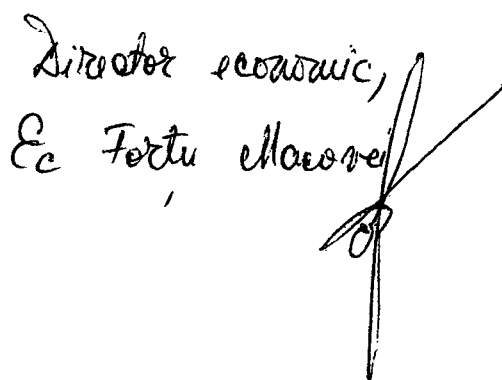 Director economic,
Ec Forțu Macovei